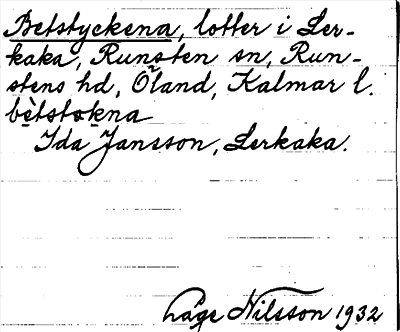 Betstyckena, lotter i Ler-
kaka, Runsten sn, Run-
stens hd, Öland, Kalmar l.
bètstɷkna
Ida Jansson, Lerkaka.
Låge Nilsson 1932